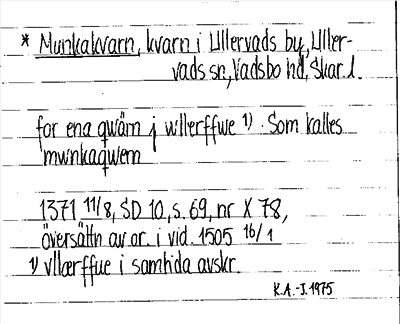 * Munkakvarn, kvarn i Ullervads by, Uller-
vads sn, Vadsbo hd, Skar. l.
for ena qwärn j wllerffwe 1). Som kalles
mwnkaqwern
1371 11/8, SD 10, s. 69, nr X 78,
översättn av or. i vid. 1505 16/1
1) vllærffue i samtida avskr.
K.A.-J. 1975